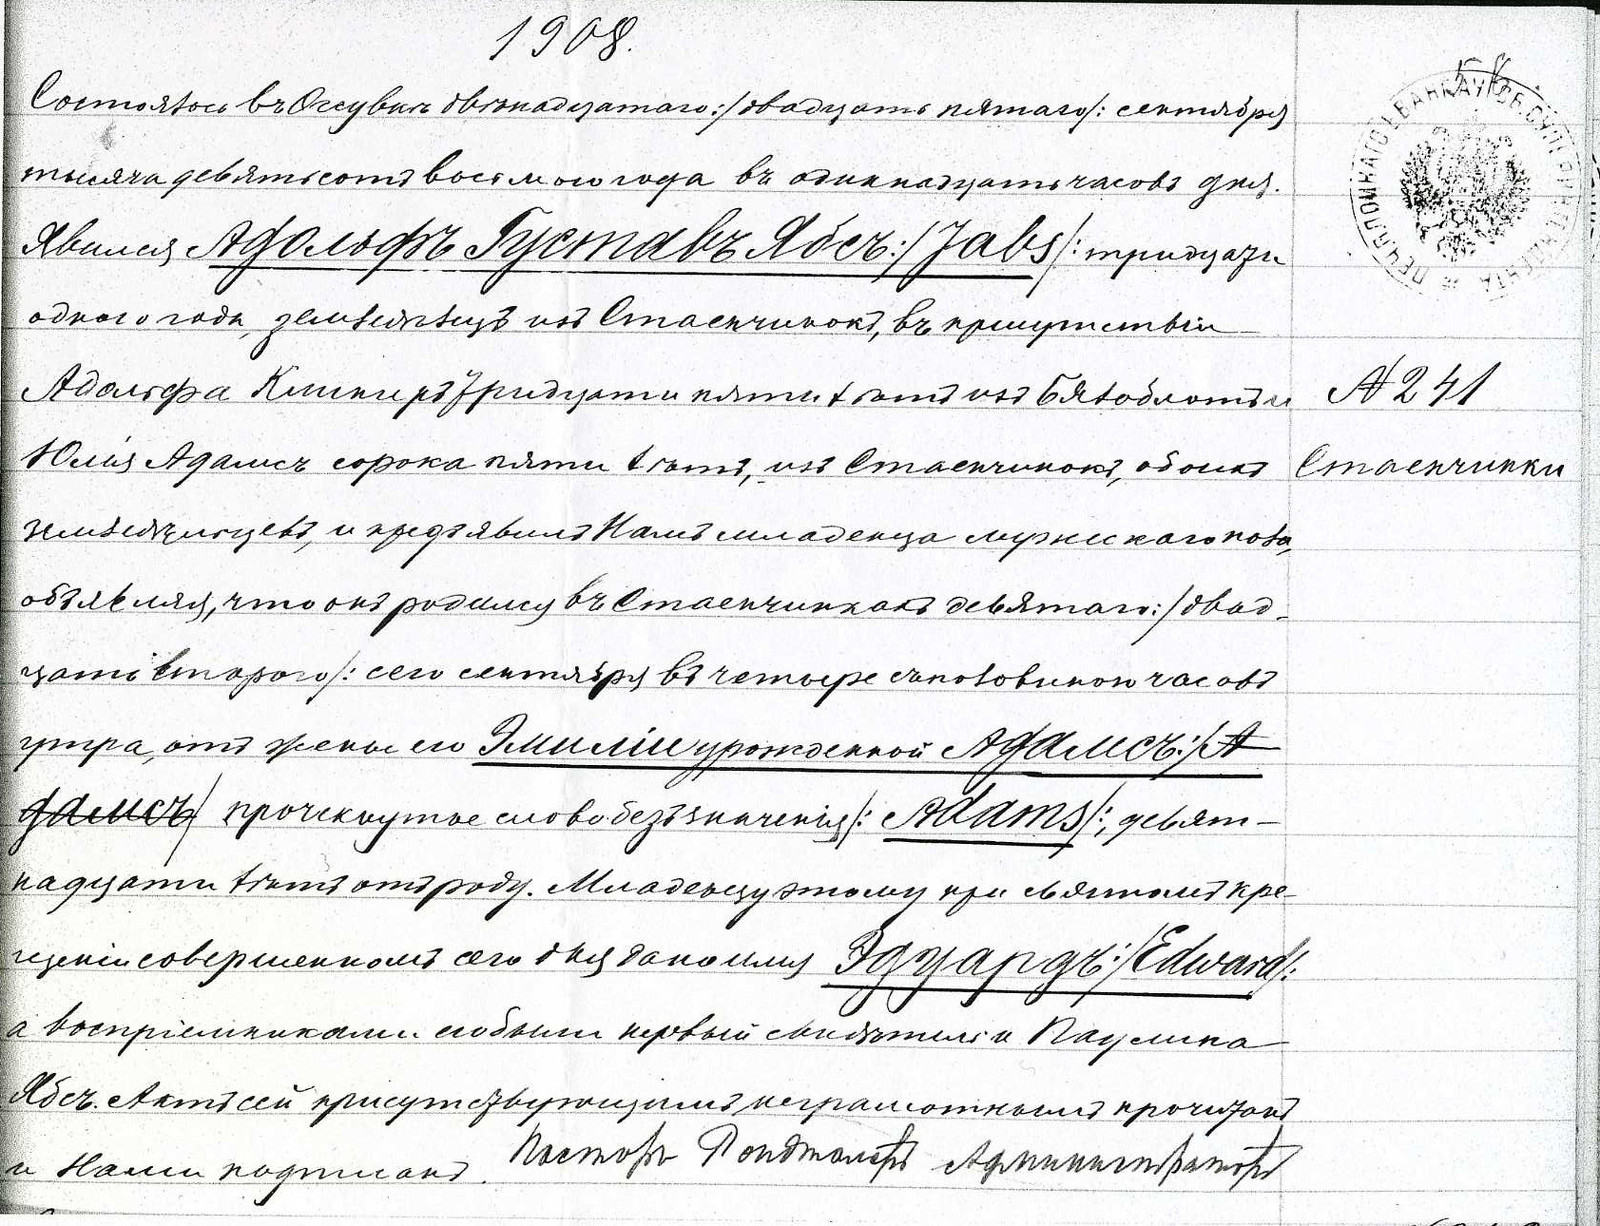 1908.
Состоялось въ Осувкѣ двѣнадцатаго:/двадцать пятаго/: сентября
тысяча девятьсотъ восьмого года въ одиннадцать часовъ дня.
Явился Адольфъ Густавъ Ябсъ:/Jabs/: тридцати
одного года, земледѣлецъ изъ Стаенчинокъ, въ присутствіи
Адольфа тридцати пяти лѣтъ изъ Бялоблотъ и
№ 241
Юлія Адамсъ сорока пяти лѣтъ, изъ Стаенчинокъ, обоихъ
Стаенчинки
земледѣльцевъ, и предъявилъ Намъ младенца мужескаго пола,
объявляя, что онъ родился въ Стаенчинкахъ девятаго:/двад-
цать второго/: сего сентября въ четыре съ половиною часовъ
утра, отъ жены его Эмиліи урожденной Адамсъ:/А
дамсъ/ прочекнутое слово безъ значенія/: Adams/:, девят-
надцати лѣтъ отъ роду. Младенцу этому при святомъ кре-
щеніи совершенномъ сего дня дано имя Эдуардъ:/Edward/:
а воспріемниками его были первый свидѣтель и Паулина
Ябсъ. Актъ сей присутствующимъ неграмотнымъ прочитанъ
и Нами подписанъ. Пасторъ Администраторъ